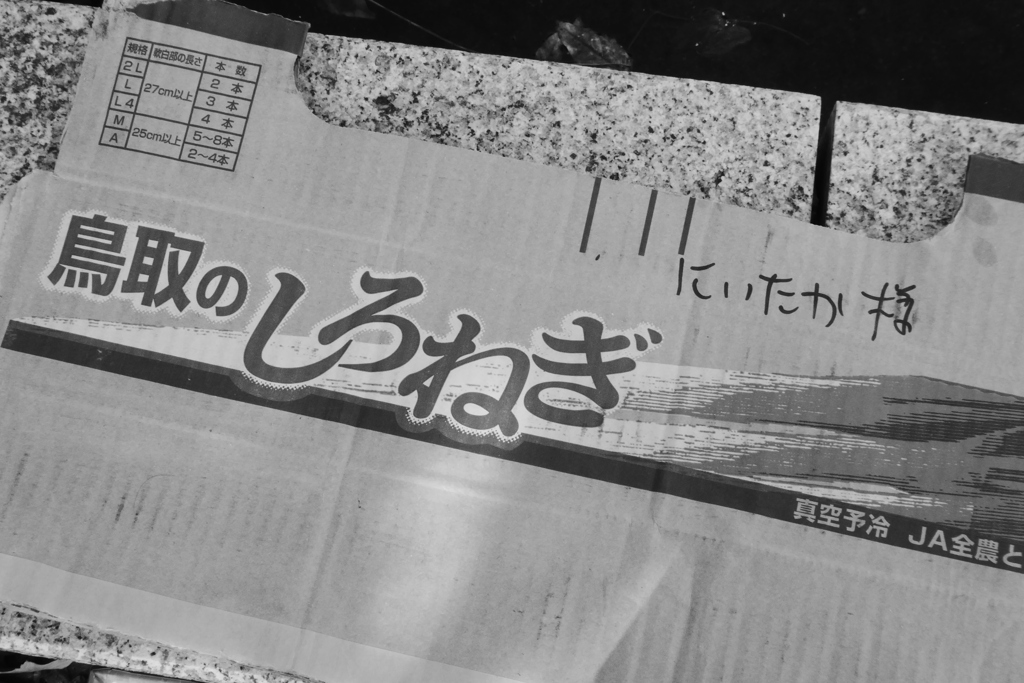 規格 軟白部の長さ 本数
2L 27cm以上 2本
L 3本
L4 4本
M 25cm以上 5~8本
A 2~4本
鳥取のしろねぎ
にいたか様
真空予冷 JA全農と